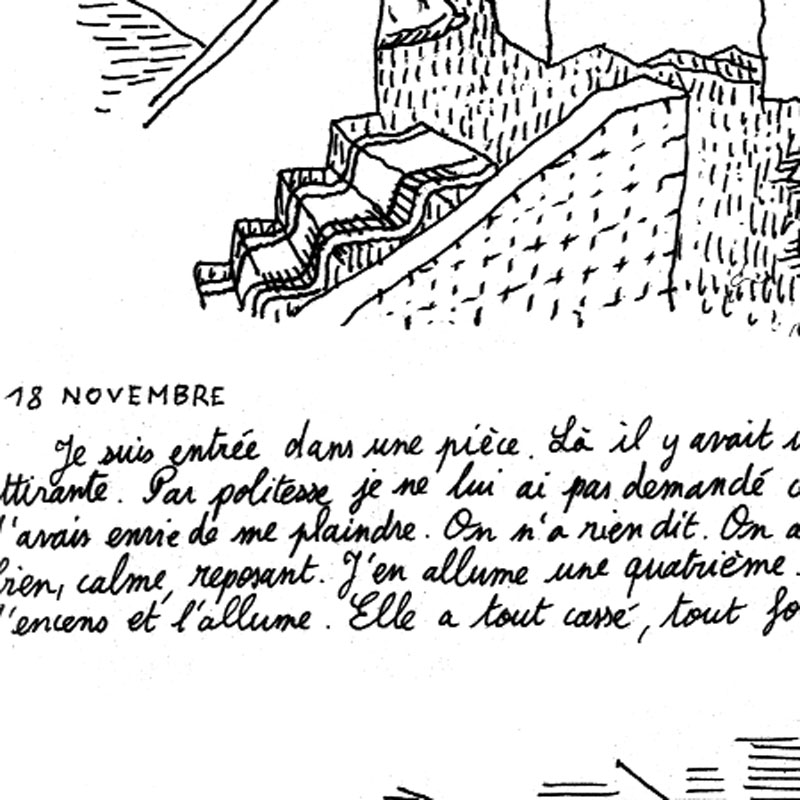 18 NOVEMBRE
Je suis entrée dans une pièce. Là il y avait
ttirante. Par politesse je ne lui ai pas demandé
J'avais envie de me plaindre. On n'a rien dit. On a
bien, calme, reposant. J'en allume une quatrième.
l'encens et l'allume. Elle a tout cassé, tout